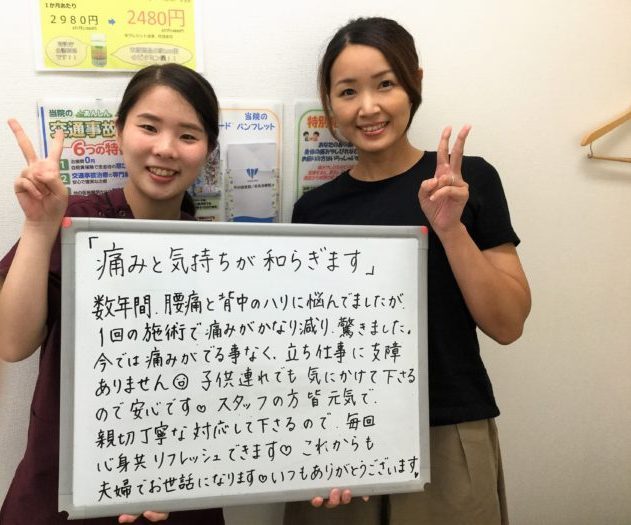 1か月あたり
2980円 → 2480円
当院の
交通事故
6つの特
治療費0円
当院の
パンフレット
特別
「痛みと気持ちが和らぎます」
数年間、腰痛と背中のハリに悩んでましたが、
1回の施術で痛みがかなり減り、驚きました。
今では痛みがでる事なく、立ち仕事に支障
ありません☺ 子供連れでも気にかけて下さる
ので安心です♡ スタッフの方皆元気で、
親切丁寧な対応して下さるので、毎回
心身共リフレッシュできます♡ これからも
夫婦でお世話になります♡いつもありがとうございます♡